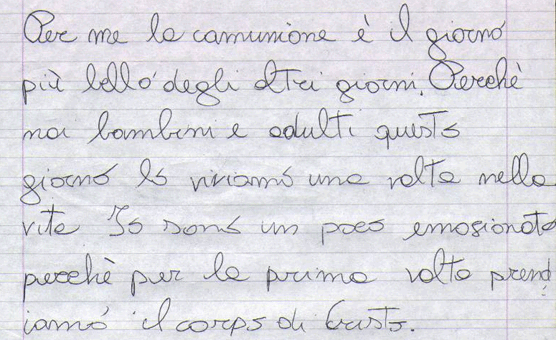 Per me la comunione è il giorno
più bello degli altri giorni. Perchè
noi bambini e adulti questo
giorno lo viviamo una volta nella
vita Io sono un poco emozionato
perchè per la prima volta prend
iamo il corpo di Cristo.